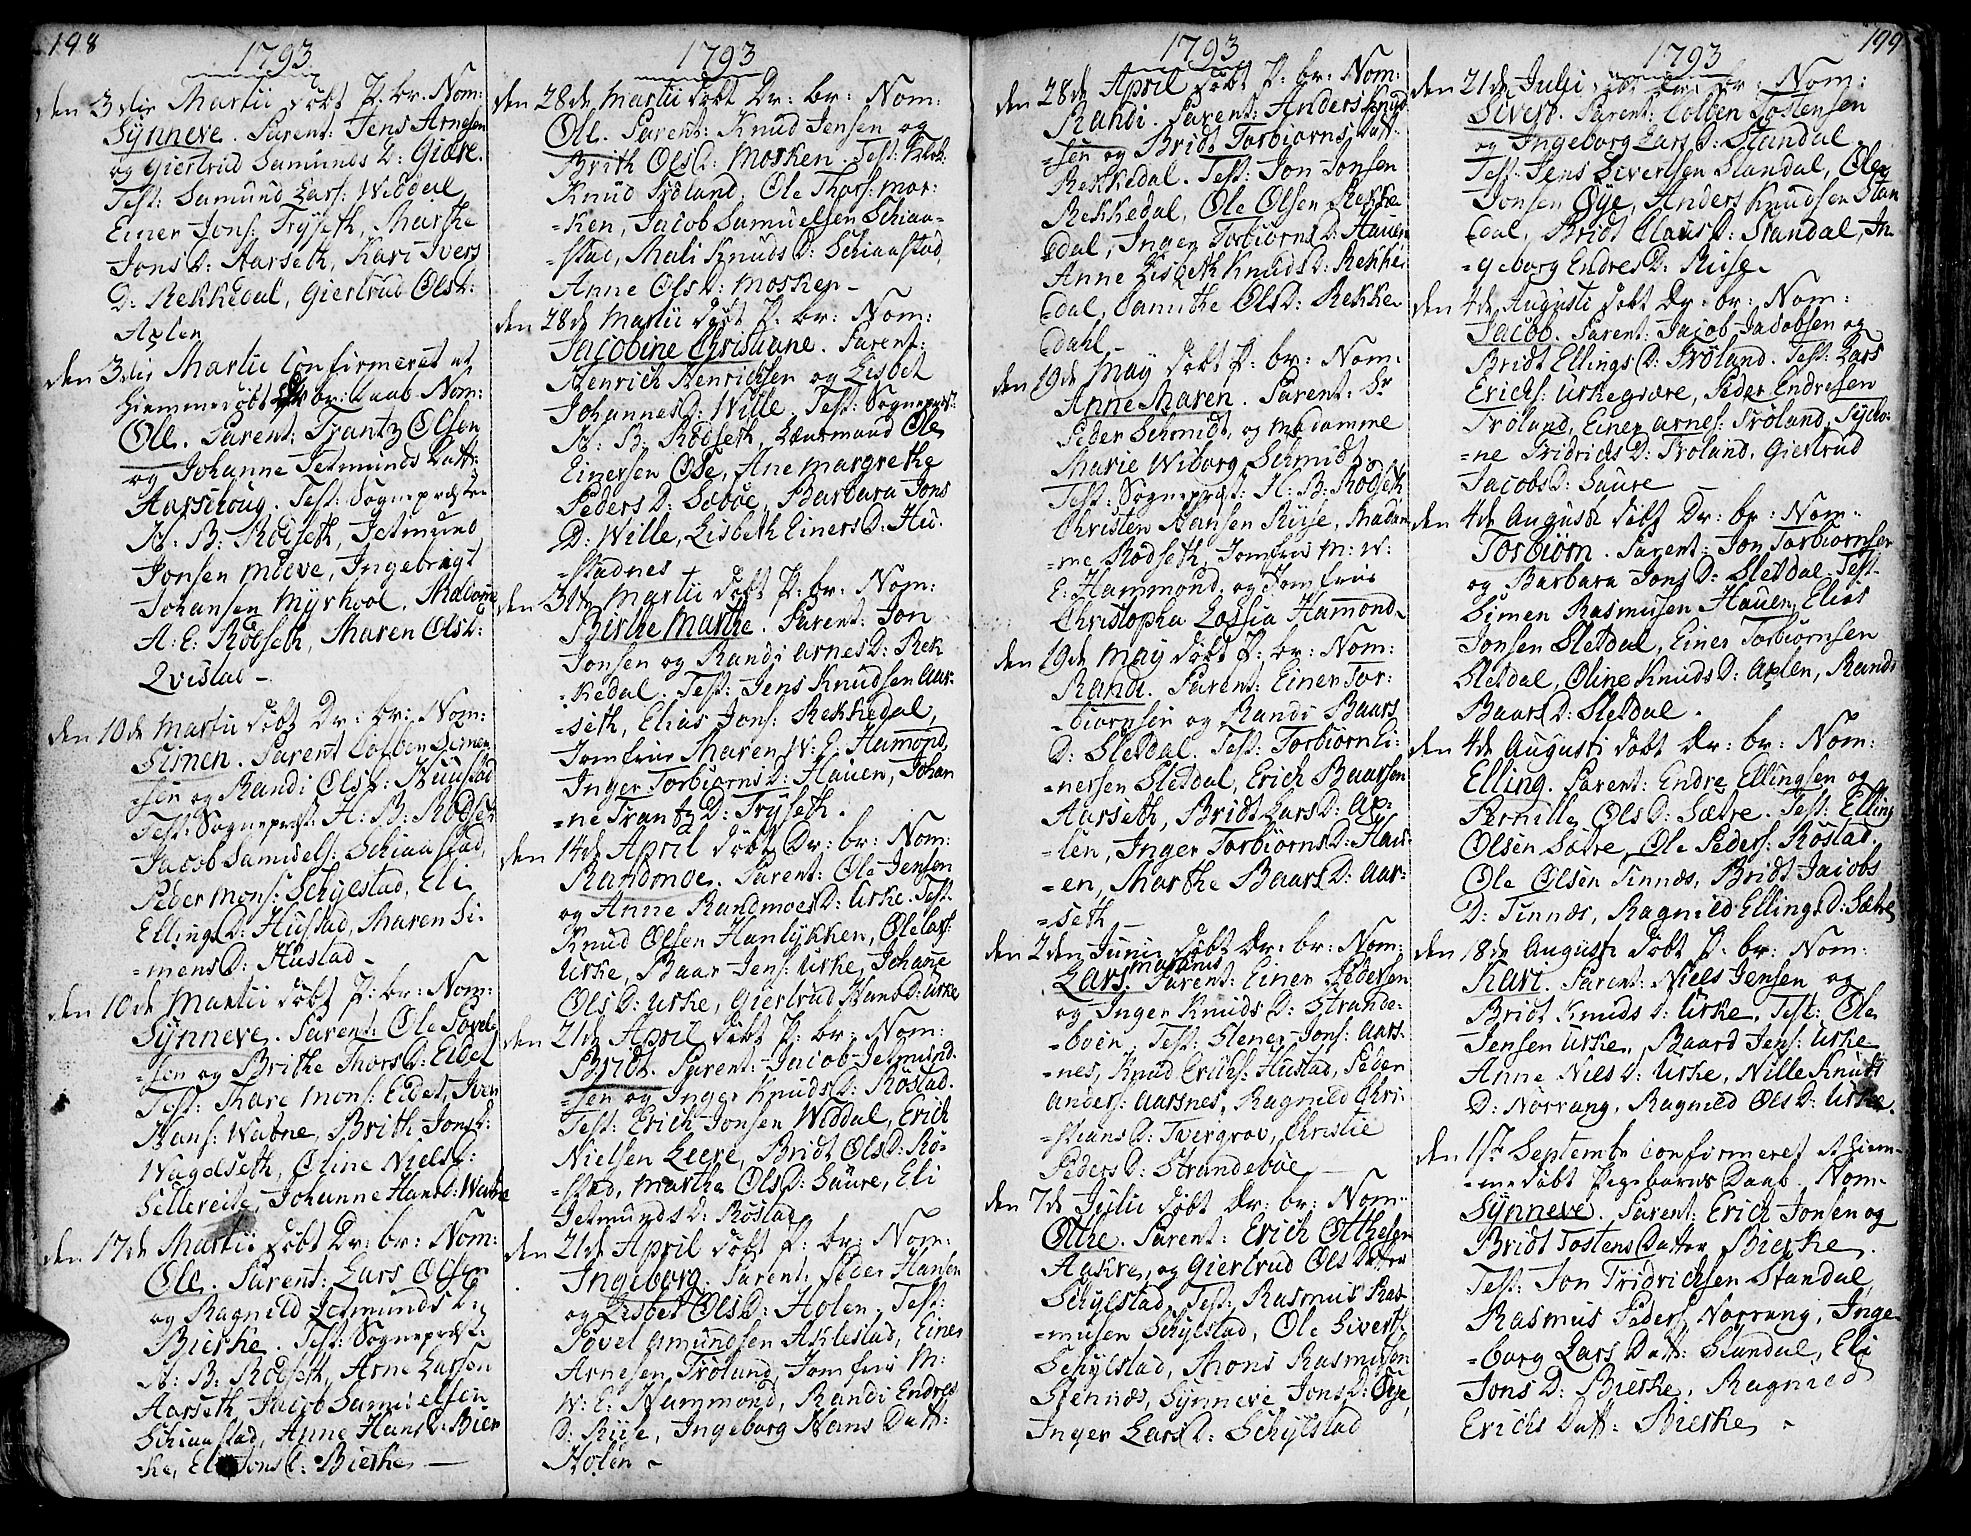 198
1793
den 3die Martii döbt P: br: Nom:
Synneve. Parent: Jens Arnesen
og Giertrud Samunds D: Giære.
Test: Samund Lars: Widdal
Einer Jons: Tryseth, Marthe
Jons D: Aarseth, Kari Ivers
D: Rekkedal, Giertrud Ols D:
Axlen
den 3die Martii Confirmeret et
hiemmedöbt br: Daab Nom:
Ole. Parent: Frantz Olsen
og Johanne Jetmunds Datt:
Aarschoug. Test: Sognepræsten
H: B: Rödseth, Jetmund
Jonsen Moeve, Ingebrigt
Johansen Myrhool, Madame
A: E: Rödseth, Maren Ols D:
Qvistad -
den 10de Martii döbt Dr: br: Nom:
Simen. Parent Colben Simen
=sen og Randi Ols D: Huustad
Test: Sognepræst: H: B: Rödset
Jacob Samuels: Schiaastad,
Peder Mons: Schylstad, Eli
Ellings D: Hustad, Maren Si-
=mens D: Hustad -
den 10de Martii döbt P: br: Nom:
Synneve. Parent: Ole Povel
=sen og Brithe Thors D: Eidet
Test: Thare Mons: Eidet, Iver
Hans: Watne, Brith Jons D:
Wagelseth, Oline Niels D:
Sellereise, Johanne Hans D: Watne
den 17de Martii döbt Dr: br: Nom:
Ole. Parent: Lars Olsen
og Ragnild Jetmunds D:
Bierke. Test: Sognepræst:
H: B: Rödseth, Arne Larsen
Aarseth Jacob Samuelsen
Schiaastad, Anne Hans D: Bier
ke, Eli Jons D: Bierke -
1793
den 28de Martii döbt Dr: br: Nom:
Ole. Parent: Knud Jensen og
Brith Ols D: Mosken. Test: Klok:
Knud Tröland, Ole Thors: Mos-
ken, Jacob Samuelsen Schiaa-
=stad, Mali Knuds D: Schiaastad,
Anne Ols D: Mosken -
den 28de Martii döbt P: br: Nom:
Jacobine Christiane. Parent:
Henrich Henrichsen og Lisbet
Johannes D: Wille. Test: Sognepræst:
H: B: Rödseth, Lænsmand Ole
Einersen Ose, Ane Margrethe
Peders D: Sæböe, Barbara Jons
D: Wille, Lisbeth Einers D: Hu-
=stadnes
den 31te Martii döbt P: br: Nom:
Birthe Marthe. Parent: Jon
Jonsen og Randi Arnes D: Rek
=kedal. Test: Jens Knudsen Aar-
seth, Elias Jons: Rekkedal,
Jomfrue Maren W: E: Hamond,
Inger Torbiörns D: Hauen, Johan
=ne Frantz D: Tryseth.
den 14de April döbt Dr: br: Nom:
Randmoe. Parent: Ole Jensen
og Anne Randmoes D: Urke. Test:
Knud Olsen Hanlykken, Ole Lars:
Urke, Baar Jens: Urke, Johane
Ols D: Urke, Giertrud Hans D: Urke
den 21de April döbt P: br: Nom:
Bridt. Parent: Jacob Jetmund-
=sen og Inger Knuds D: Röstad.
Test: Erich Jonsen Widdal, Erich
Nielsen Leere, Bridt Ols D: Rö-
=stad, Marthe Ols D: Saure, Eli
Jetmunds D: Röstad
den 21de April döbt P: br: Nom:
Ingeborg. Parent: Peder Hansen
og Lisbet Ols D: Holen. Test:
Povel Amundsen Aklestad, Einer
Arnesen Tröland, Jomfrue M:
W: E: Hammond, Randi Endres
D: Riise, Ingeborg Hans Datt:
Holen -
1793
den 28de April döbt P: br: Nom:
Randi. Parent: Anders Knud
=sen og Bridt Torbiörns Datt:
Rekkedal. Test: Jon Jonsen
Rekkedal, Ole Olsen Rekke
dal, Inger Torbiörns D: Hauen
Anne Lisbeth Knuds D: Rekke
dal, Danuthe Ols D: Rekke
dahl
den 19de May döbt P: br: Nom:
Anne Maren. Parent: Sr
Peder Schmidt, og Madamme
Marie Wiborg Schmidt.
Test: Sognepræst: H: B: Rödseth
Christen Hansen Riise, Madam
=me Rödseth, Jomfrue M: W:
E: Hammond, og Jomfrue
Christopha Lossia Hamond
den 19de May döbt P: br: Nom:
Randi. Parent: Einer Tor-
=biörnsen og Randi Baars
D: Sletdal. Test: Torbiörn Ei-
=nersen Sletdal, Erich Baarsen
Aarseth, Bridt Lars D: Ax-
=len, Inger Torbiörns D: Hau-
=en, Marthe Baars D: Aar-
=seth -
den 2den Junii döbt Dr: br: Nom:
Lars Martinus. Parent: Einer Pedersen
og Inger Knuds D: Strande-
=böen. Test: Stener Jons: Aars-
=nes, Knud Erichs: Hustad, Peder
Anders: Aarsnes, Ragnild Chri-
=stians D: Tvergrov, Christie
Peders D: Strandeböe
den 7de Julii döbt Dr: br: Nom:
Othe. Parent: Erich Othesen
Aakre, og Giertrud Ols Datter
Schylstad. Test: Rasmus Ras-
=musen Schylstad, Ole Siverts:
Schylstad, Mons Rasmusen
Stennæs, Synneve Jons D: Öye,
Inger Lars D: Schylstad
199
1793
den 21de Julii döbt Dr: br: Nom:
Sivert. Parent: Colben Tostensen
og Ingeborg Lars D: Standal.
Test: Jens Sivertsen Standal, Ole
Jonsen Öye, Anders Knudsen Stan
dal, Bridt Claus D: Standal, In-
=geborg Endres D: Riise -
den 4de Augusti döbt Dr: br: Nom:
Jacob. Parent: Jacob Jacobsen og
Bridt Ellings D: Tröland. Test: Lars
Erichs: Urkegiære, Peder Endresen
Tröland, Einer Arnes: Tröland, Sycho-
=ne Fridrichs D: Tröland, Giertrud
Jacobs D: Saure
den 4de Augusti döbt Dr: br: Nom:
Torbiörn. Parent: Jon Torbiörnsen
og Barbara Jons D: Sletdal. Test:
Simen Rasmusen Hauen, Elias
Jonsen Sletdal, Einer Torbiörnsen
Sletdal, Oline Knuds D: Axlen, Randi
Baars D: Sletdal.
den 4de Augusti döbt Dr: br: Nom:
Elling. Parent: Endre Ellingsen og
Pernille Ols D: Sætre. Test: Elling
Olsen Sætre, Ole Peders: Röstad.
Ole Olsen Tinnæs, Bridt Jacobs
D: Tinnæs, Ragnild Ellings D: Sætre
den 18de Augusti döbt P: br: Nom:
Kari. Parent: Niels Jensen og
Bridt Knuds D: Urke. Test: Ole
Jensen Urke, Baard Jens: Urke
Anne Niels D: Urke, Nille Knuds
D: Norrang, Ragnild Ols D: Urke.
den 1ste Septembr confirmeret et hiem-
=medöbt Pigebarns Daab. Nom:
Synneve. Parent: Erich Jonsen og
Bridt Tostens Datter Bierke.
Test: Jon Fridrichsen Standal,
Rasmus Peders: Norrang, Inge-
=borg Lars Datt: Standal, Eli
Jons D: Bierke, Ragnild
Erichs Datt: Bierke -